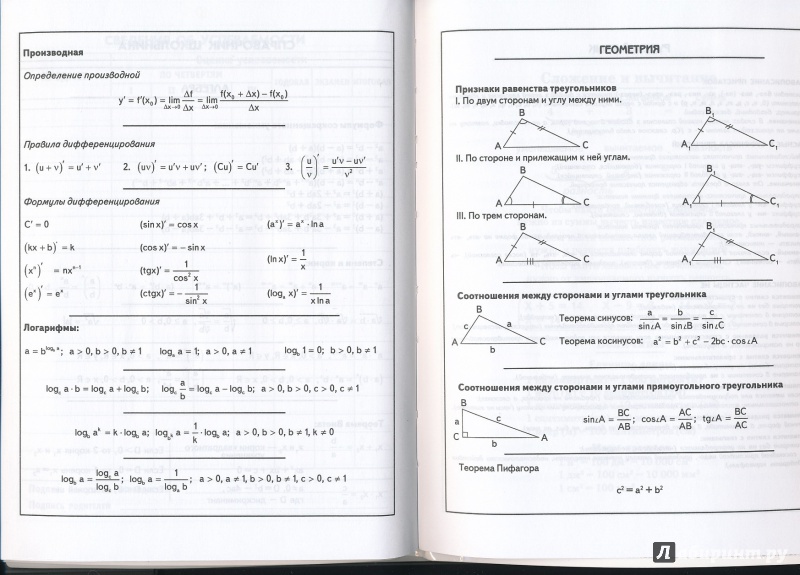 Производная
Определение производной
y' = f'(x₀) = lim Δx→0 Δf/Δx = lim Δx→0 (f(x₀ + Δx) − f(x₀))/Δx
Правила дифференцирования
1. (u + v)' = u' + v' 2. (uv)' = u'v + uv'; (Cu)' = Cu' 3. (u/v)' = (u'v − uv')/v²
Формулы дифференцирования
C' = 0 (sin x)' = cos x (aˣ)' = aˣ · ln a
(kx + b)' = k (cos x)' = − sin x (ln x)' = 1/x
(xⁿ)' = nxⁿ⁻¹ (tgx)' = 1/cos² x
(eˣ)' = eˣ (ctgx)' = − 1/sin² x (logₐ x)' = 1/(x ln a)
Логарифмы:
a = b^(log_b a); a > 0, b > 0, b ≠ 1 logₐ a = 1; a > 0, a ≠ 1 log_b 1 = 0; b > 0, b ≠ 1
log_c a · b = log_c a + log_c b; log_c a/b = log_c a − log_c b; a > 0, b > 0, c > 0, c ≠ 1
log_b aᵏ = k · log_b a; log_(bᵏ) a = 1/k · log_b a; a > 0, b > 0, b ≠ 1, k ≠ 0
log_b a = log_c a/log_c b; log_b a = 1/logₐ b; a > 0, a ≠ 1, b > 0, b ≠ 1, c > 0, c ≠ 1
ГЕОМЕТРИЯ
Признаки равенства треугольников
I. По двум сторонам и углу между ними.
B B₁
A C A₁ C₁
II. По стороне и прилежащим к ней углам.
B B₁
A C A₁ C₁
III. По трем сторонам.
B B₁
A C A₁ C₁
Соотношения между сторонами и углами треугольника
B
c a
A b C
Теорема синусов: a/sin∠A = b/sin∠B = c/sin∠C
Теорема косинусов: a² = b² + c² − 2bc · cos∠A
Соотношения между сторонами и углами прямоугольного треугольника
B
a c
C b A
sin∠A = BC/AB; cos∠A = AC/AB; tg∠A = BC/AC
Теорема Пифагора
c² = a² + b²
Лабиринт.ру